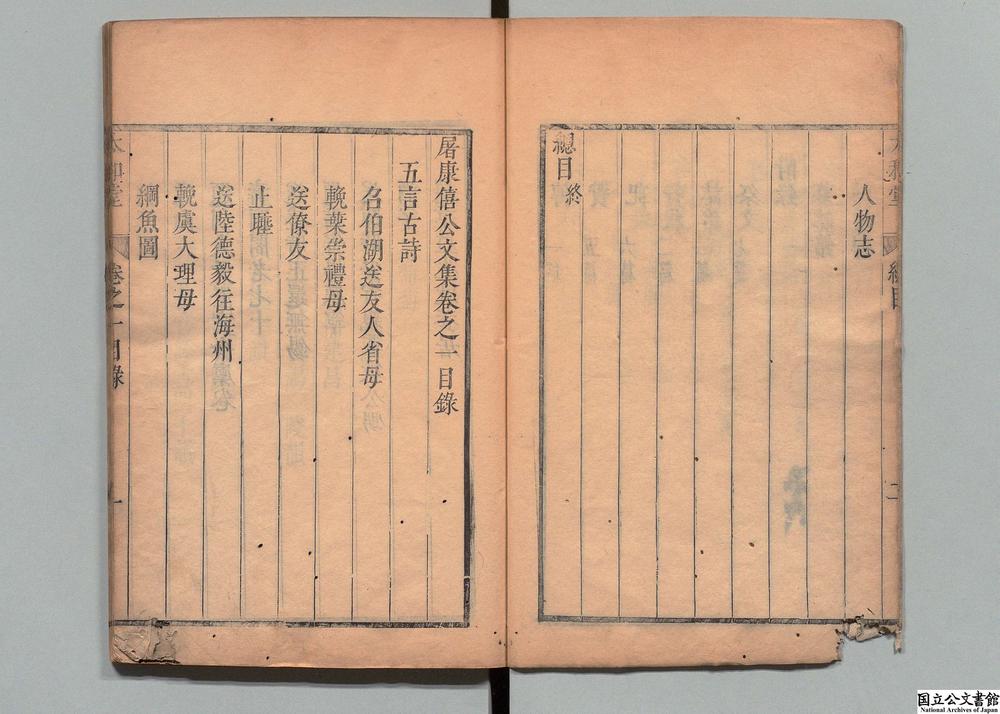 人物志
總目終
屠康僖公文集卷之一目錄
五言古詩
名伯湖送友人省母
輓葉崇禮母
送僚友
止睡
送陸德毅往海州
輓虞大理母
綱魚圖
卷之一目錄
一
総目
二
国立公文書館
National Archives of Japan